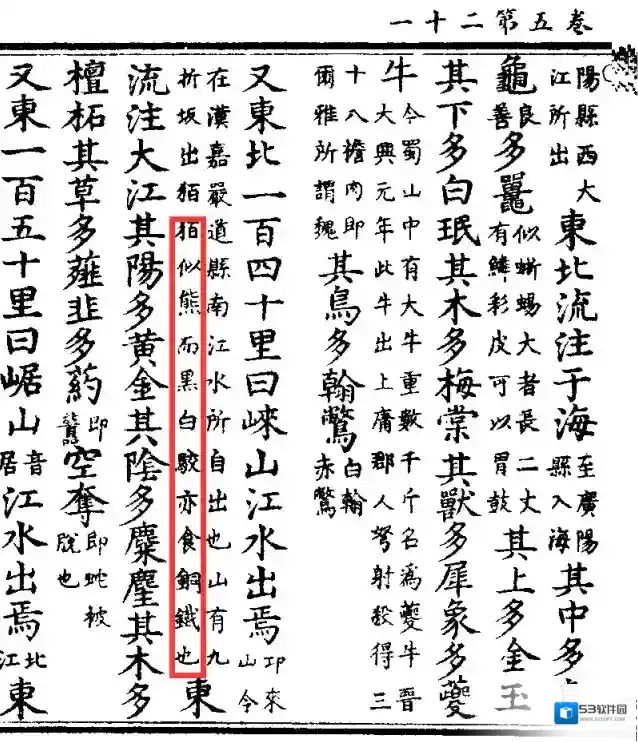 卷五第二十一
陽縣西大江所出東北流注于海至廣陽縣入海其中多
龜良善多鼉似蜥蜴大者長二丈有鱗彩皮可以冒鼓其上多金玉
其下多白珉其木多梅棠其獸多犀象多夔
牛今蜀山中有大牛重數千斤名為夔牛晉大興元年此牛出上庸郡人弩射殺得三
十八擔肉即爾雅所謂魏其鳥多翰鷩白翰赤鷩
又東北一百四十里曰崍山江水出焉邛來山今
在漢嘉嚴道縣南江水所自出也山有九折坂出狛狛似熊而黑白駮亦食銅鐵也東
流注大江其陽多黃金其陰多麋麈其木多
檀柘其草多薤韭多葯即虈空奪即蛇被脫也
又東一百五十里曰崌山音居江水出焉北江東
53软件园